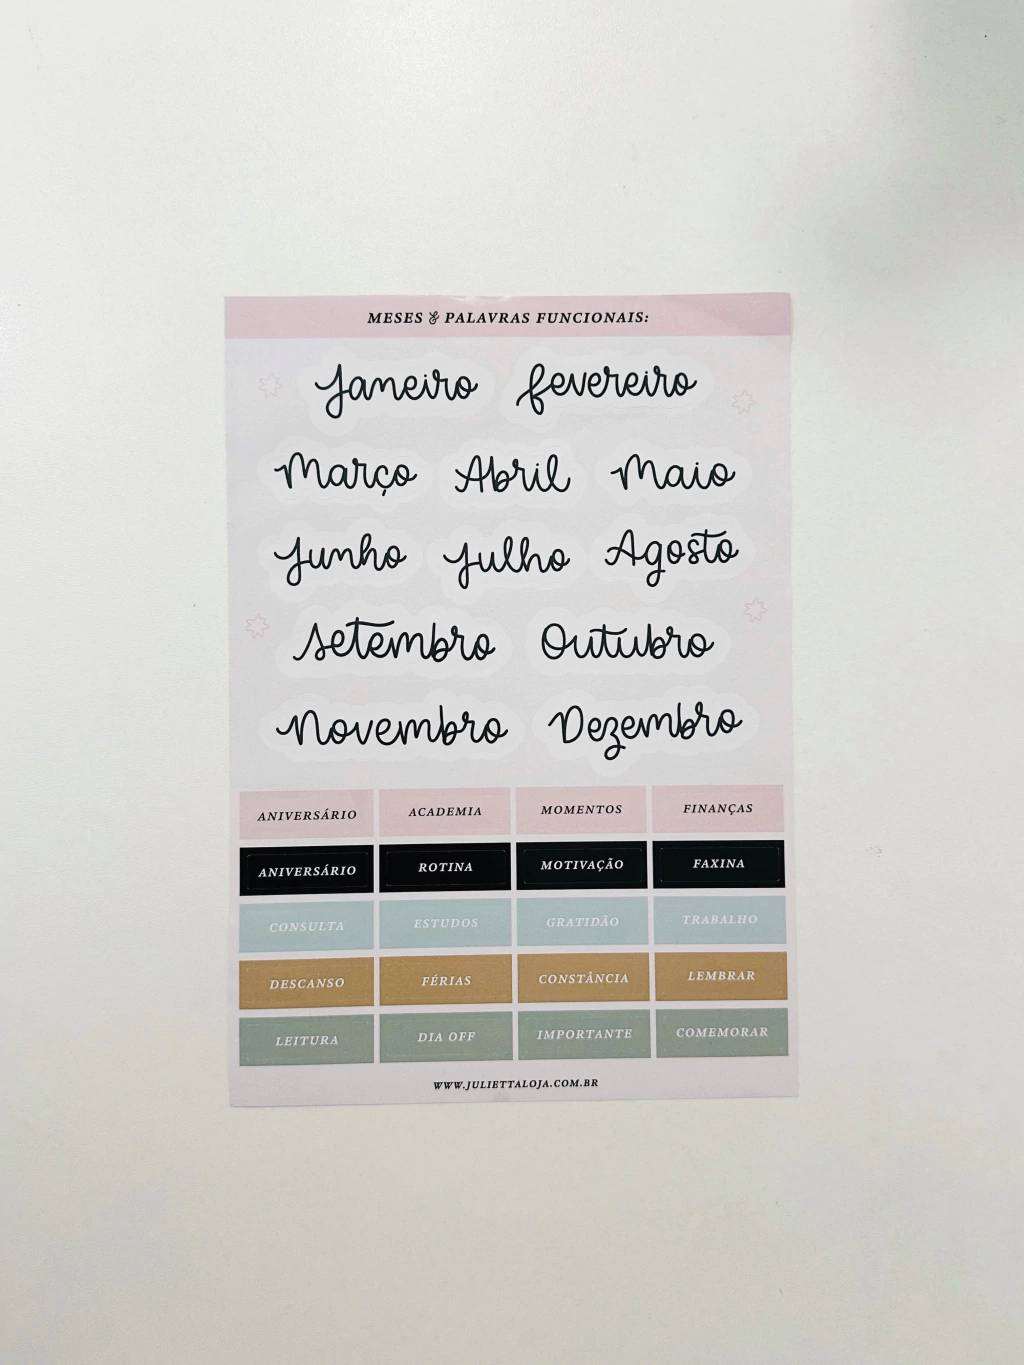 MESES & PALAVRAS FUNCIONAIS:
Janeiro fevereiro
Março Abril Maio
Junho Julho Agosto
Setembro Outubro
Novembro Dezembro
ANIVERSÁRIO ACADEMIA MOMENTOS FINANÇAS
ANIVERSÁRIO ROTINA MOTIVAÇÃO FAXINA
CONSULTA ESTUDOS GRATIDÃO TRABALHO
DESCANSO FÉRIAS CONSTÂNCIA LEMBRAR
LEITURA DIA OFF IMPORTANTE COMEMORAR
WWW.JULIETTALOJA.COM.BR